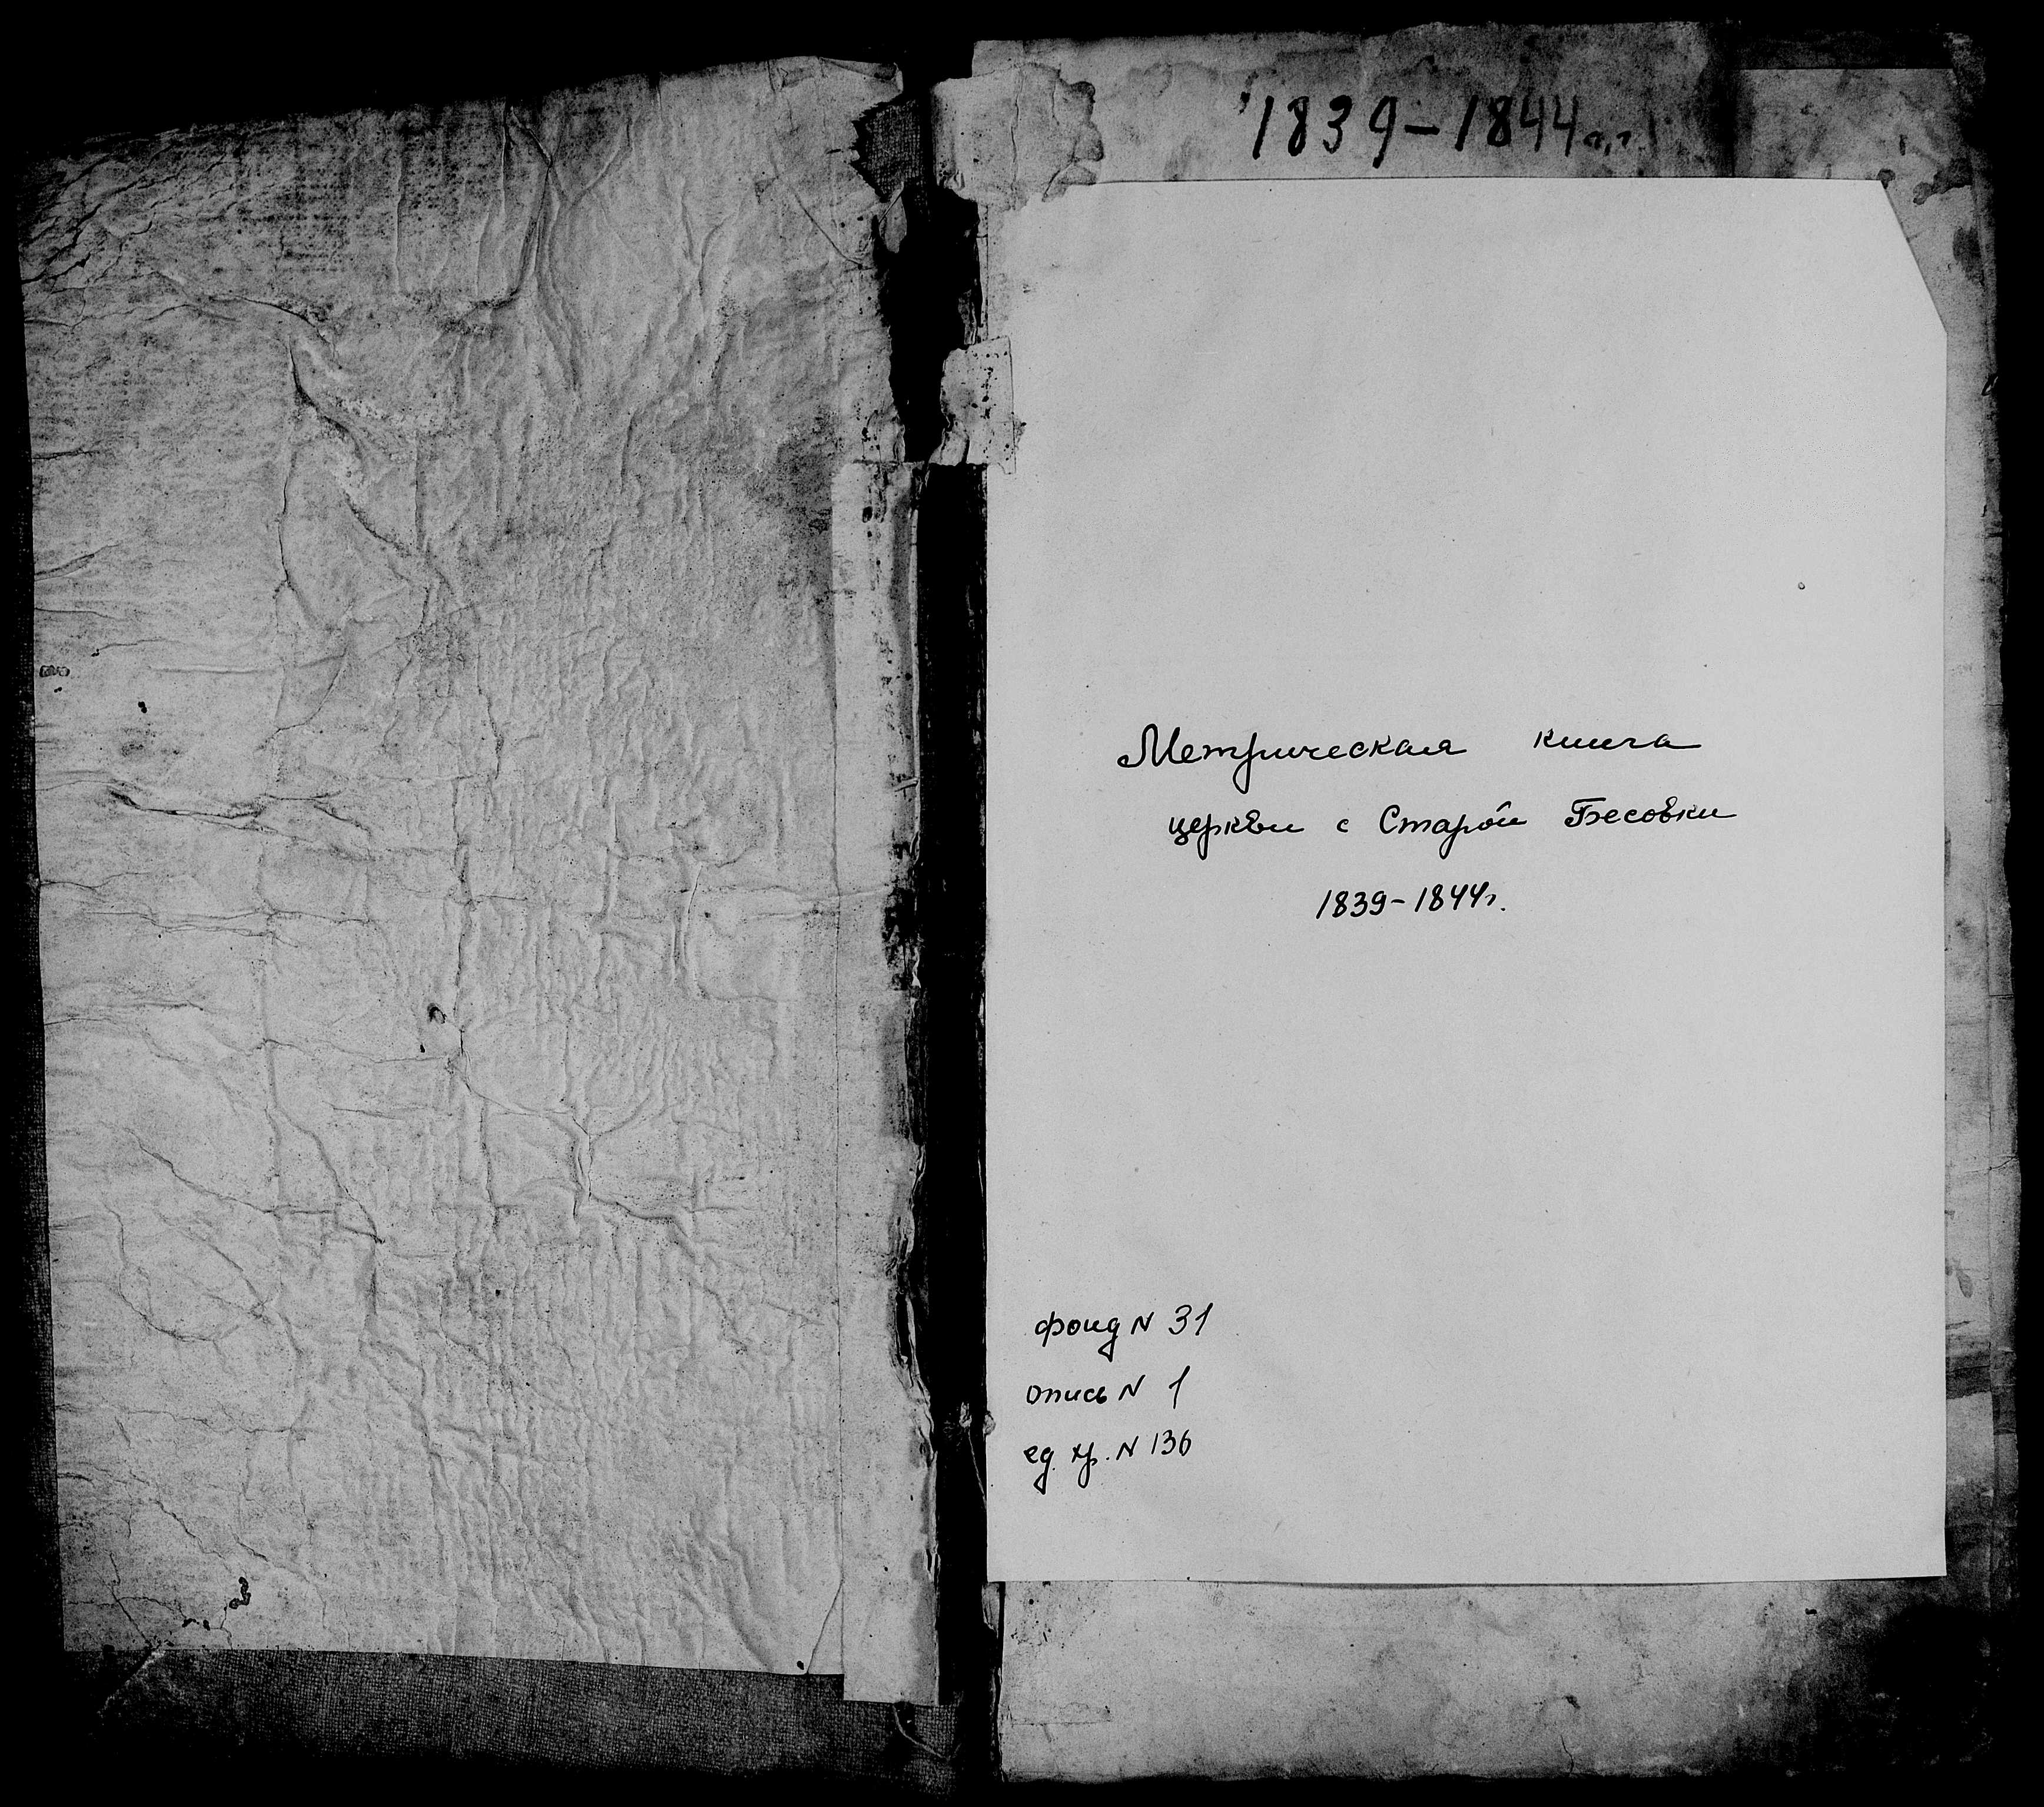 1839-1844г.г.
Метрическая книга
церкви с Старой Бесовки
1839-1844г.
фонд N 31
опись N 1
ед. хр. N 136